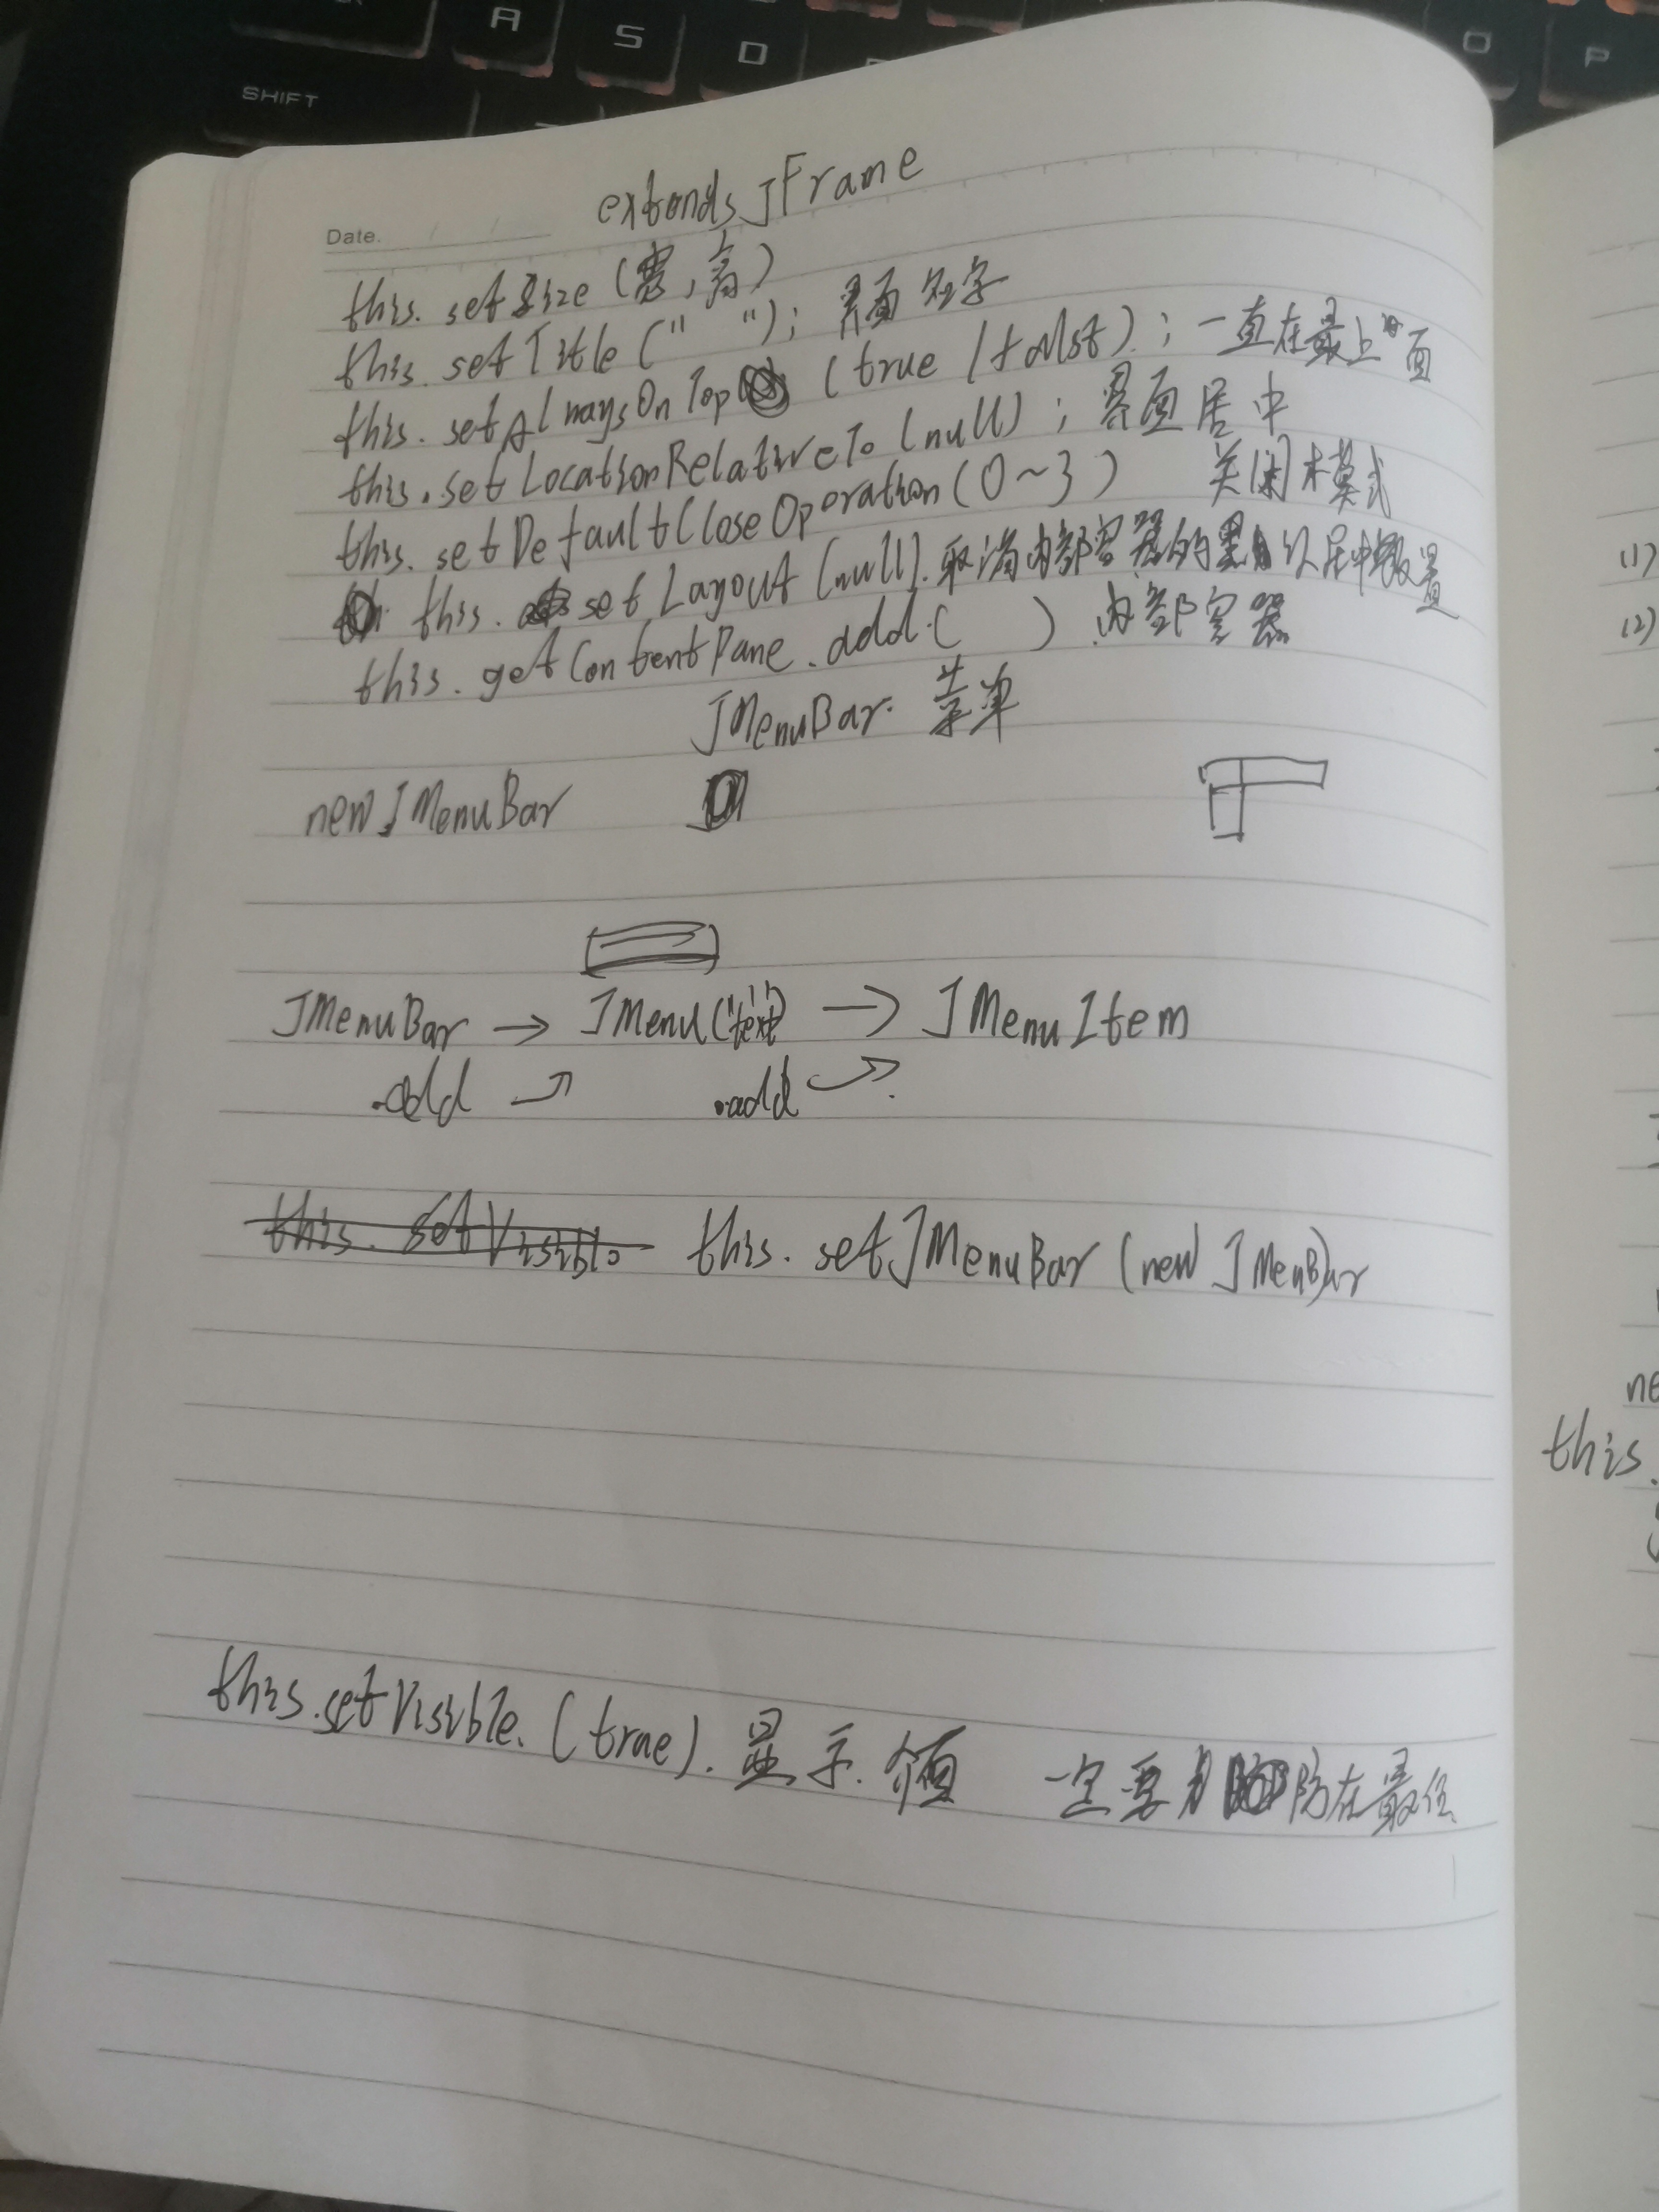 A S D O P
SHIFT
extends JFrame
Date.
this. setSize (宽,高)
this. setTitle (" "); 界面名字
this. setAlwaysOnTop (true / ); 一直在最上面
this. setLocationRelativeTo (null); 界面居中
this. setDefaultCloseOperation (0~3) 关闭模式
this. setLayout (null). 取消内部容器的 以居中 置
this. getContentPane. add. ( ) 内部容器
JMenuBar. 菜单
new JMenuBar
JMenuBar → JMenu("text") → JMenuItem
.add .add
this. setVisible this. setJMenuBar (new JMenBar
this. setVisible. (true). 显示. 一定要 防在最
(1)
(2)
ne
this.